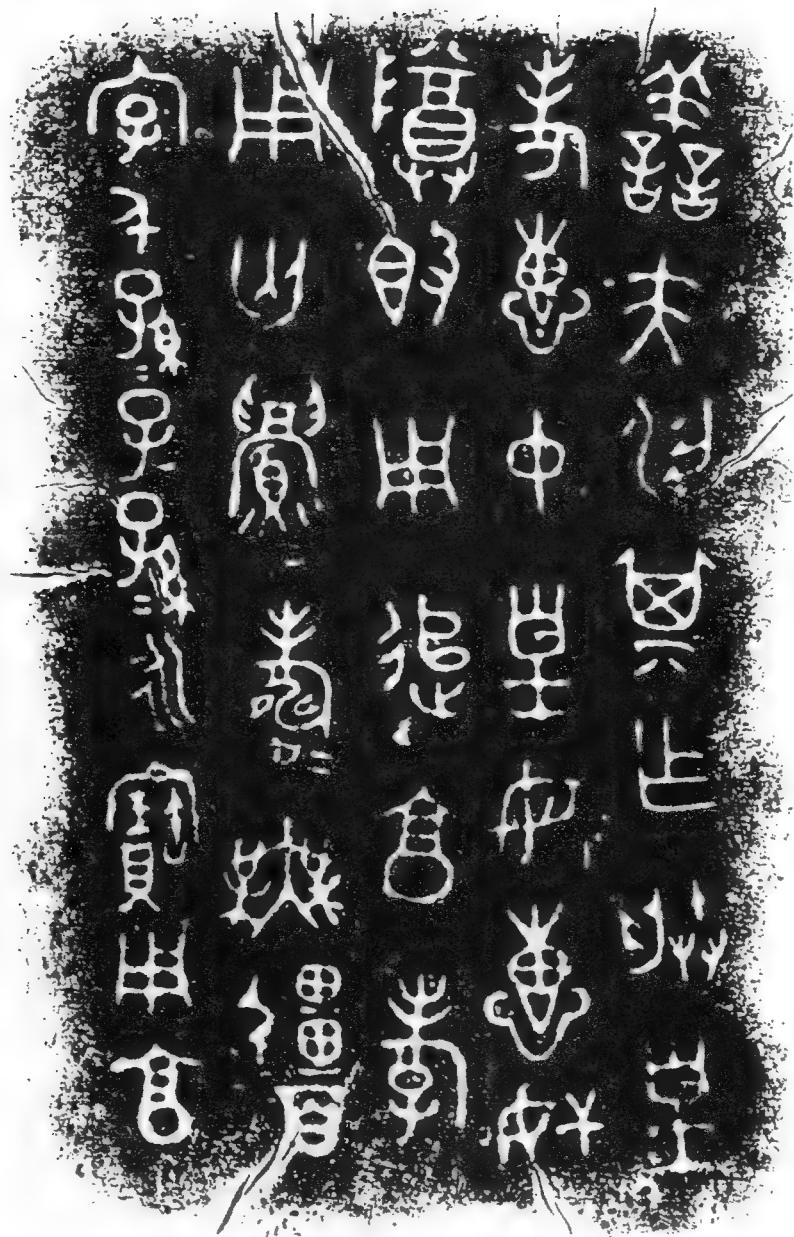 善夫汈其乍朕皇
考惠中皇母惠妣
尊𣪘用追享孝
用匄眉壽=無疆百
字千孫=子=孫=永寶用享